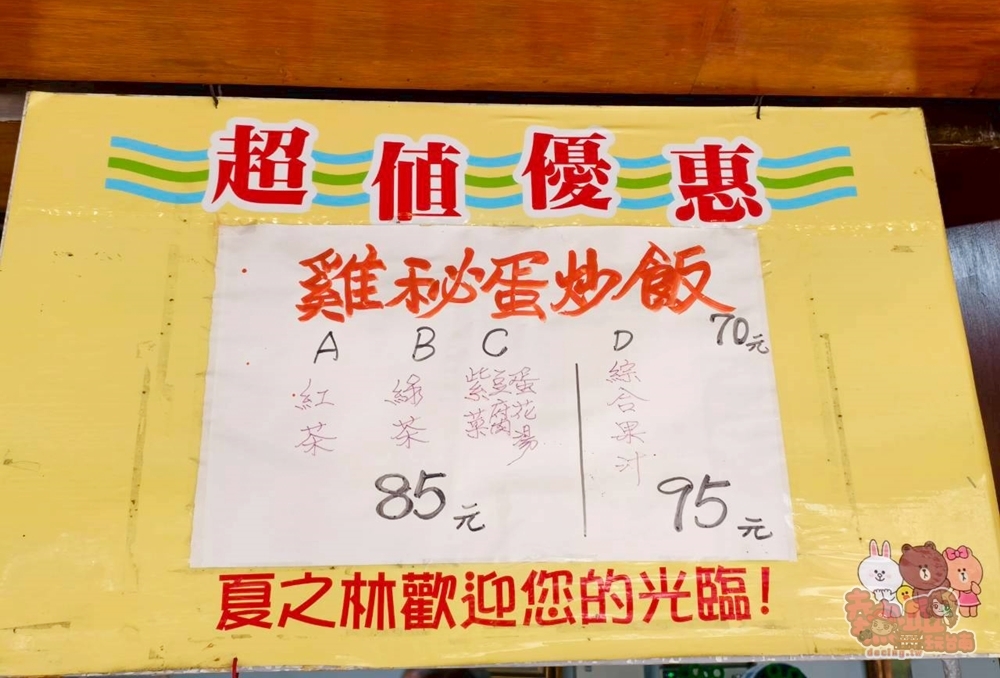 超值優惠
雞秘蛋炒飯
70元
A B C D
紅茶 綠茶 紫菜豆腐蛋花湯 綜合果汁
85元 95元
夏之林歡迎您的光臨!